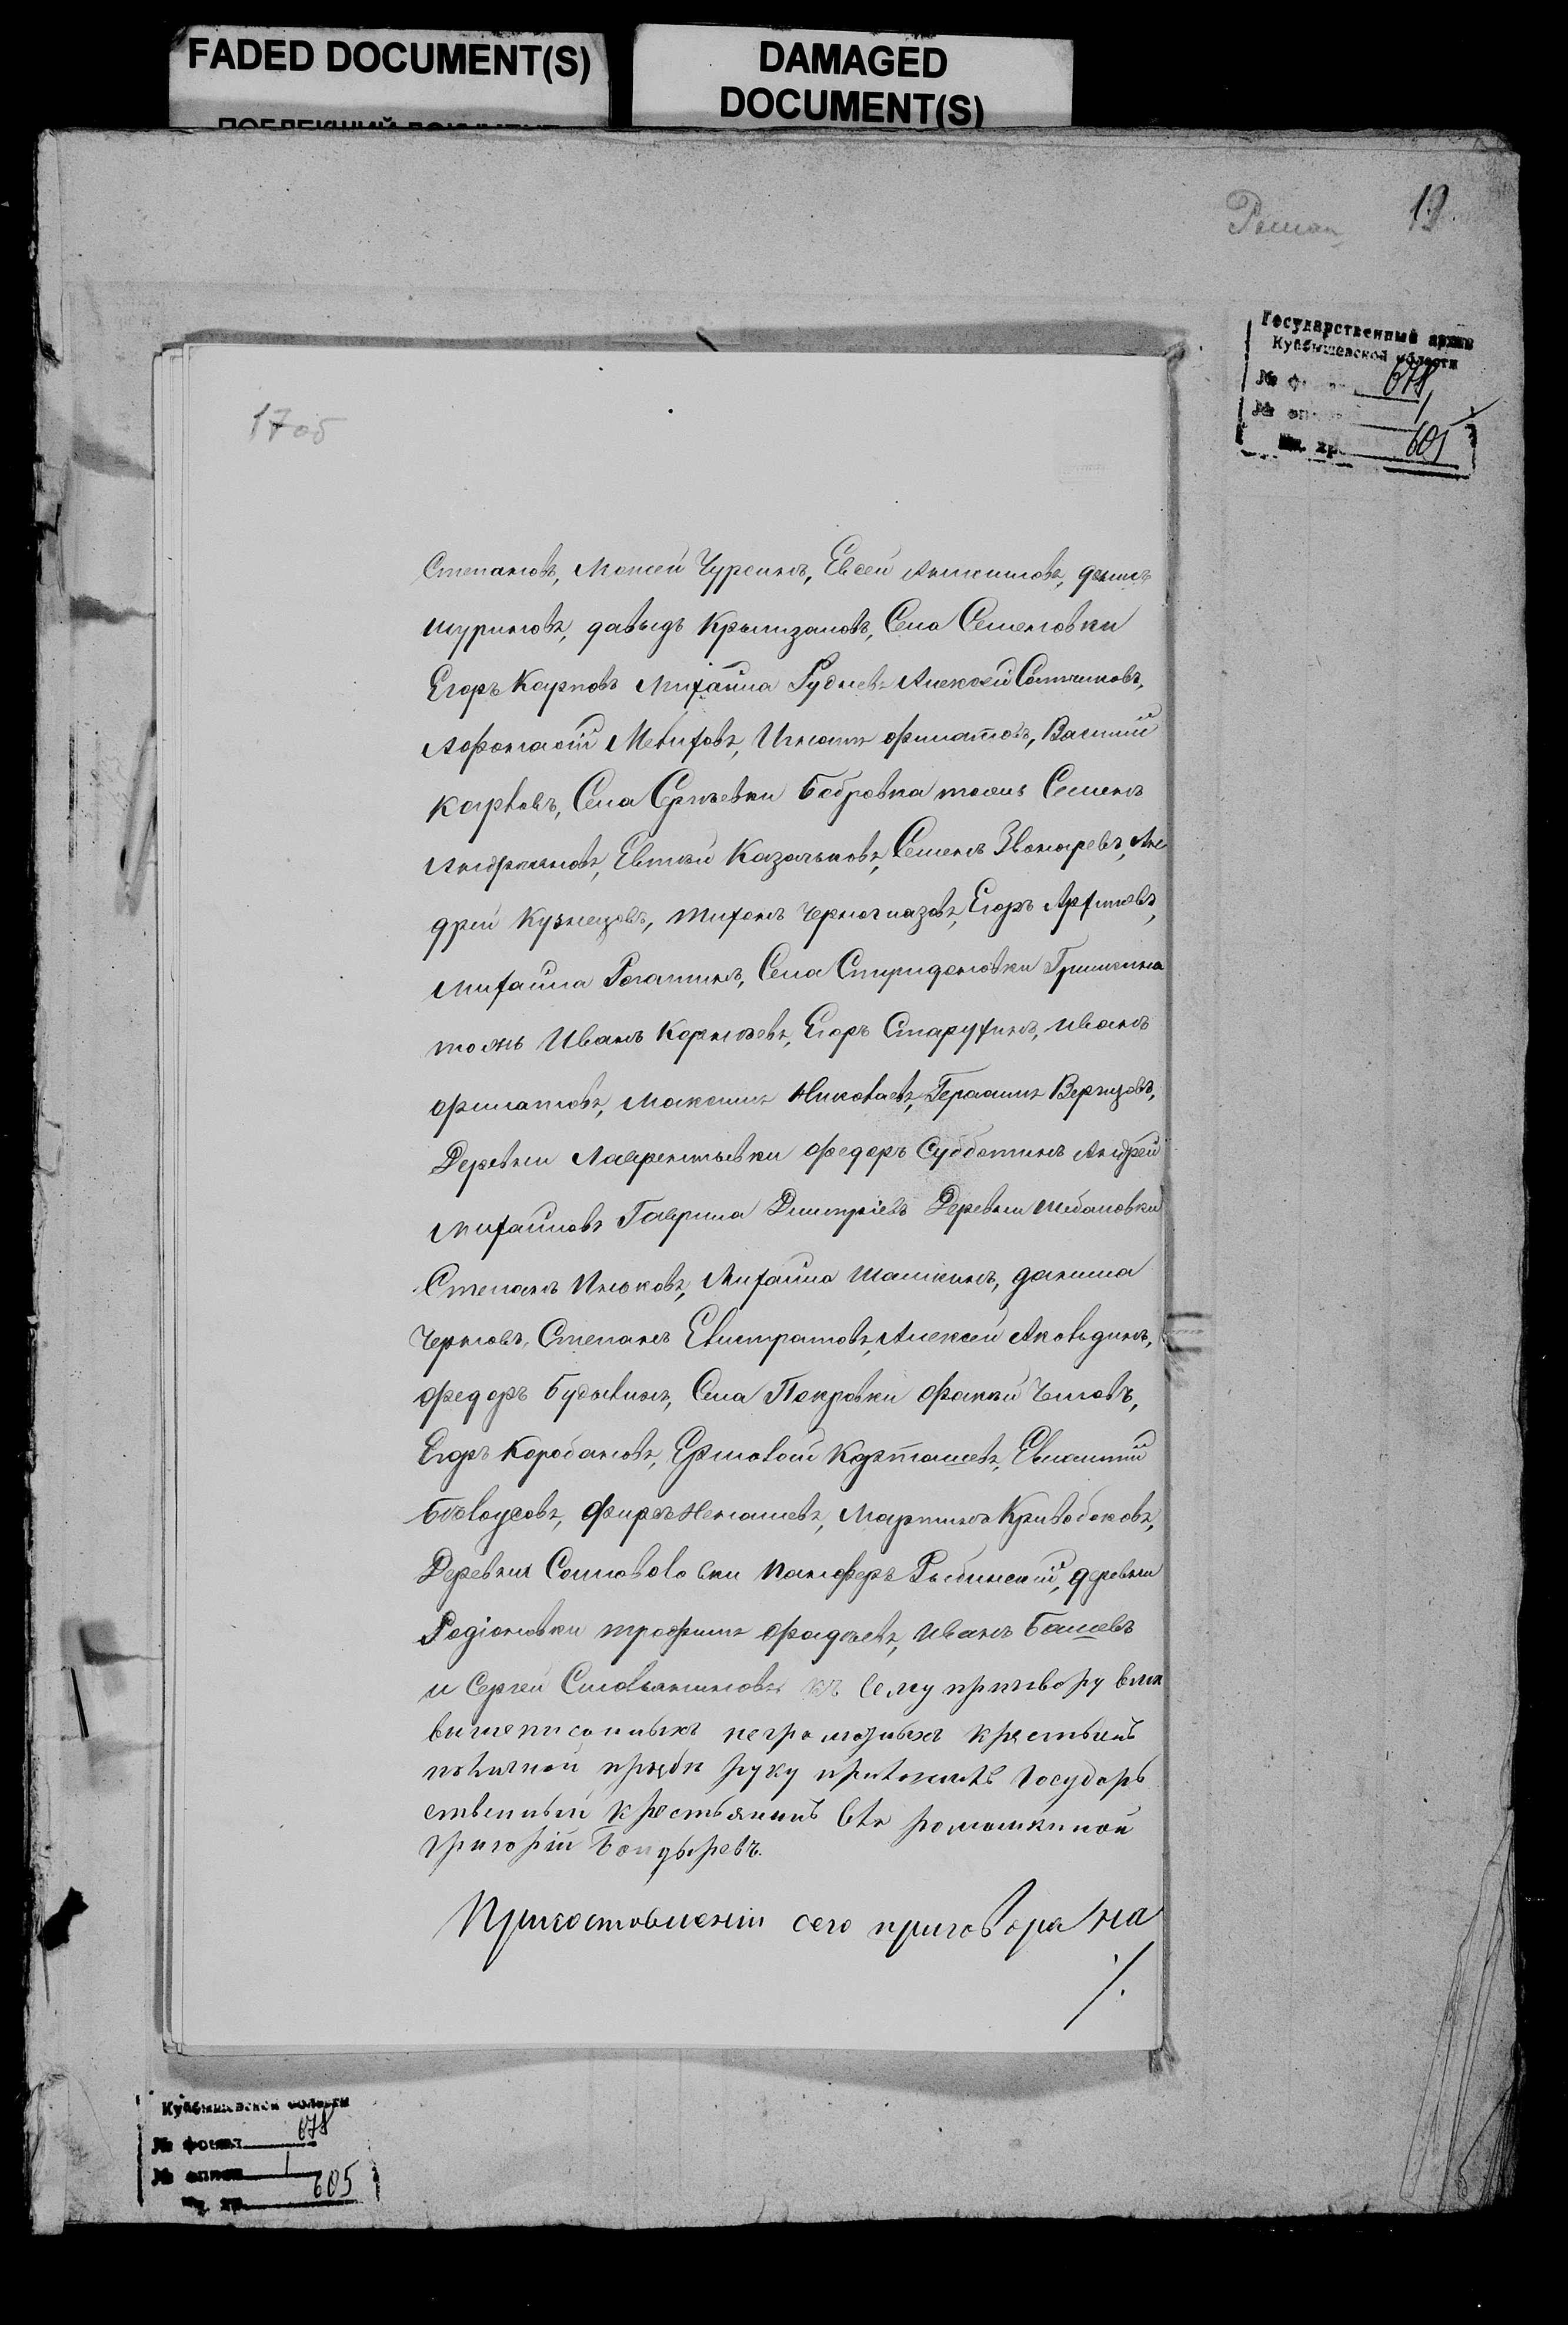 FADED DOCUMENT(S)
DAMAGED
DOCUMENT(S)
19.
Государственный архив
Куйбышевской области
№ 678
№ 1
хр. 605
17об
Степановъ, Моисей Чурсинъ, Евсей Анисимовъ,
Шуриновъ, давыдъ Крымзановъ, Села Семеновки
Егоръ Карповъ Михайла Рудневъ Алексей Сотниковъ,
Афонасій Мевиховъ, Игнатъ филатовъ, Василий
Карповъ, Села Сергѣевки Бобровка тожъ Семенъ
Андреяновъ, Евтѣй Казачьковъ, Семенъ Звонаревъ, Ан
дрей Кузнецовъ, тихонъ Черноглазовъ, Егоръ
Михайла Рогатинъ, Села Спиридоновки Гришкина
тожъ Иванъ Корнѣевъ, Егоръ Старухинъ, иванъ
филатовъ, Максимъ Николаевъ, Герасимъ
Деревни Лаврентьевки федоръ Субботинъ Андрей
Михайловъ Гаврила Дмитріевъ Деревни шибановки
Степанъ Инюковъ, Михайла Шашкинъ, данила
Черновъ, Степанъ Евистратовъ, Алексей
федоръ Села Покровки фокѣй
Егоръ Коробановъ, Ермолай Карташевъ, Евлампий
Бѣлоусовъ, фирсъ Ненашевъ, Мартинъ Кривобоковъ,
Деревни Панферъ Рыбинский, деревни
Родіоновки трофимъ фадѣевъ, иванъ Башевъ
и Сергей къ сему приговору вмѣ
вышеписанныхъ неграмотныхъ крестьянъ
по личной прозбѣ руку приложилъ Государь
ственный крестьянинъ села ромашкиной
григорій Бондыревъ.
При составленіи сего приговора на
/.
Куйбышевской области
№ фонда 678
№ описи 1
хр. 605